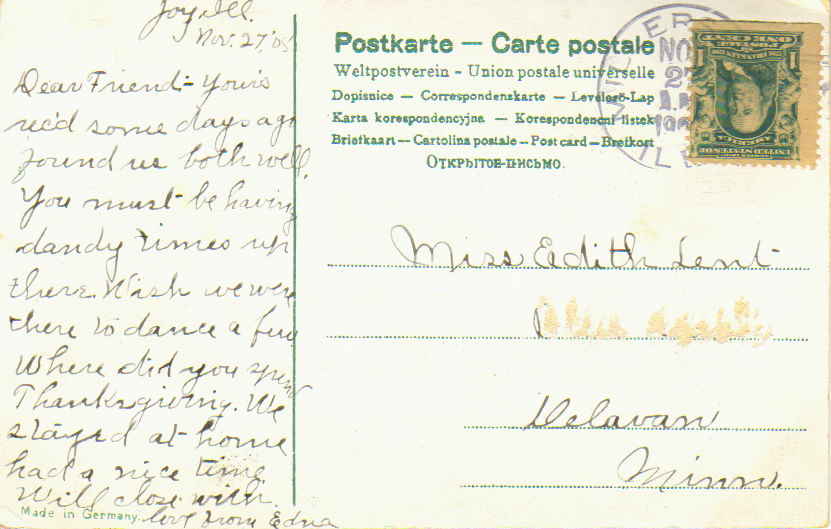 Joy, Ill.
Nov. 27, '05
Dear Friend:- Yours
rec'd some days ago
found us both well.
You must be having
dandy times up
there. Wish we were
there to dance a few
Where did you spend
Thanksgiving. We
stayed at home
had a nice time.
Will close with
love from Edna
Made in Germany.
Postkarte — Carte postale
Weltpostverein - Union postale universelle
Dopisnice — Correspondenskarte — Levelező-Lap
Karta korespondencyjna — Korespondenční lístek
Briefkaart — Cartolina postale — Post card — Brefkort
Открытое-письмо.
NOV
27
Miss Edith Lent
Delavan
Minn.